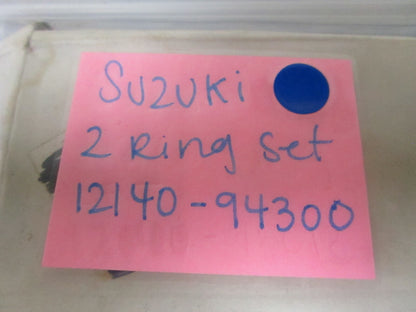 SUZUKi
2 Ring Set
12140-94300